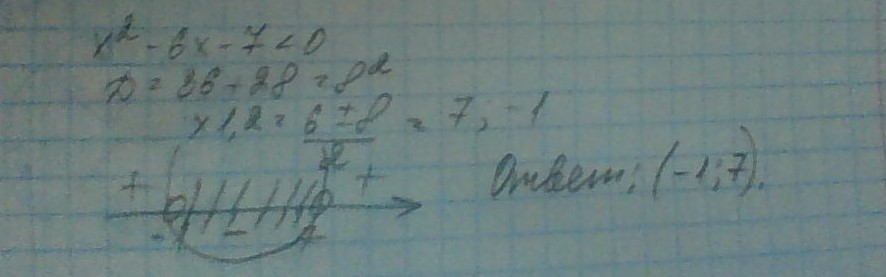 x² - 6x - 7 < 0
D = 36 + 28 = 8²
x1,2 = (6 ± 8)/2 = 7; -1
+ - +
-1 7
Ответ: (-1; 7).